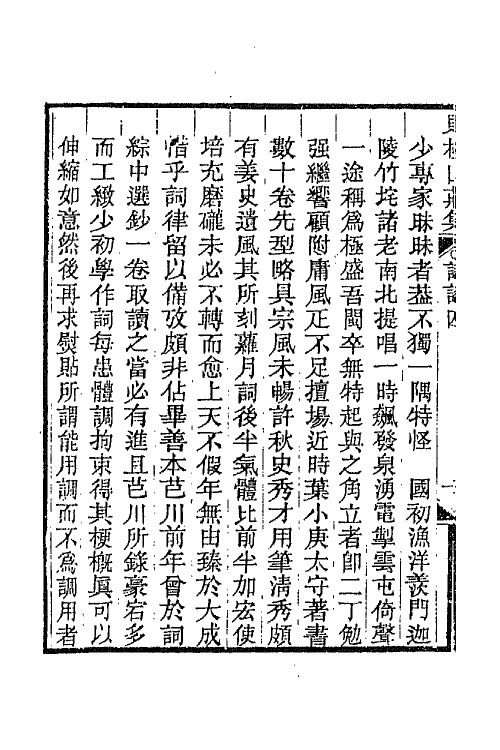 賭棋山莊集 詞話四 一
少專家昧昧者葢不獨一隅特怪 國初漁洋羨門迦
陵竹垞諸老南北提唱一時飆發泉湧電掣雲屯倚聲
一途稱爲極盛吾閩卒無特起與之角立者卽二丁勉
强繼響顧附庸風正不足擅場近時葉小庚太守著書
數十卷先型略具宗風未暢許秋史秀才用筆淸秀頗
有姜史遺風其所刻蘿月詞後半氣體比前半加宏使
培充磨礲未必不轉而愈上天不假年無由臻於大成
惜乎詞律留以備攷頗非佔畢善本芑川前年曾於詞
綜中選鈔一卷取讀之當必有進且芑川所錄豪宕多
而工緻少初學作詞每患體調拘束得其梗槪眞可以
伸縮如意然後再求熨貼所謂能用調而不爲調用者